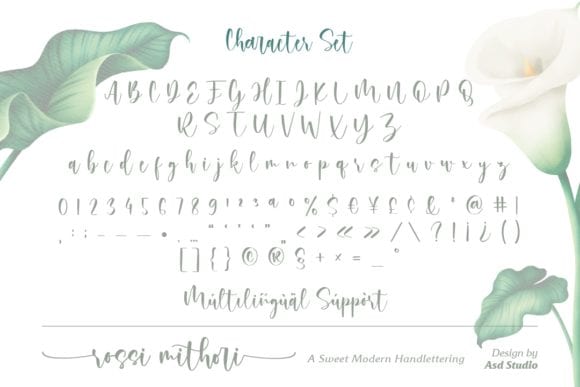 Character Set
A B C D E F G H I J K L M N O P Q
R S T U V W X Y Z
a b c d e f g h i j k l m n o p q r s t u v w x y z
0 1 2 3 4 5 6 7 8 9 ¹ ² ³ ª º % $ € ¥ £ ¢ & * @ # |
, : ; - – — • . … " ' “ ‘ „ < > « » / \ ? ! ¡ ¿ ( )
[ ] { } © ® § + × = _ °
Múltilìgüãl Súppört
rossi mithori
A Sweet Modern Handlettering
Design by
Asd Studio